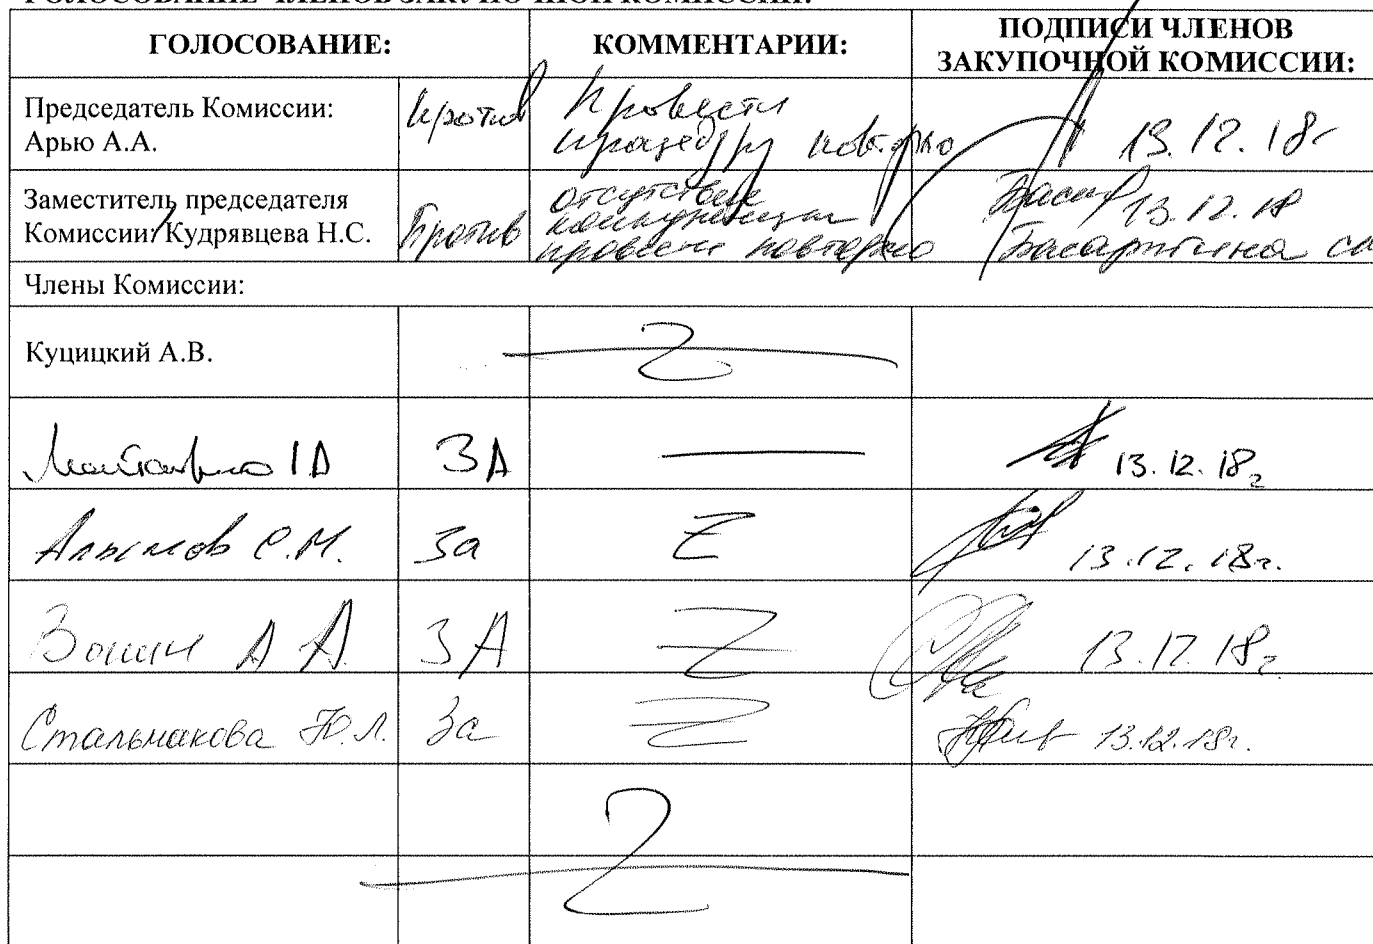 ГОЛОСОВАНИЕ ЧЛЕНОВ ЗАКУПОЧНОЙ КОМИССИИ:
ГОЛОСОВАНИЕ:
КОММЕНТАРИИ:
ПОДПИСИ ЧЛЕНОВ
ЗАКУПОЧНОЙ КОМИССИИ:
Председатель Комиссии:
Арью А.А.
против
Провести
процедуру повторно
13.12.18г
Заместитель председателя
Комиссии: Кудрявцева Н.С.
Против
отсутствие
конкуренции
провести повторно
13.12.18
Члены Комиссии:
Куцицкий А.В.
ЗА
13.12.18г
Алымов С.М.
За
13.12.18г.
Вонин А А.
ЗА
13.12.18г
Стальмакова Ю.Л.
За
13.12.18г.